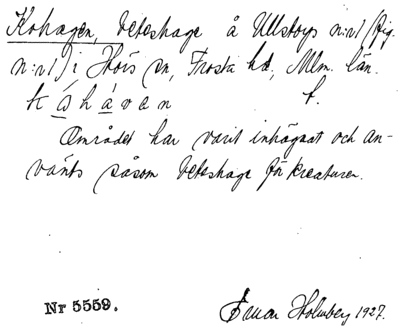 Kohagen, beteshage å Ullstorps n:r 1 (fig.
n:r 1) i Hörs sn, Frosta hd, Mlm. län.
kåhávan f.
Området har varit inhägnat och an-
vänts såsom beteshage för kreaturen.
Nr 5559. Einar Holmberg 1927.